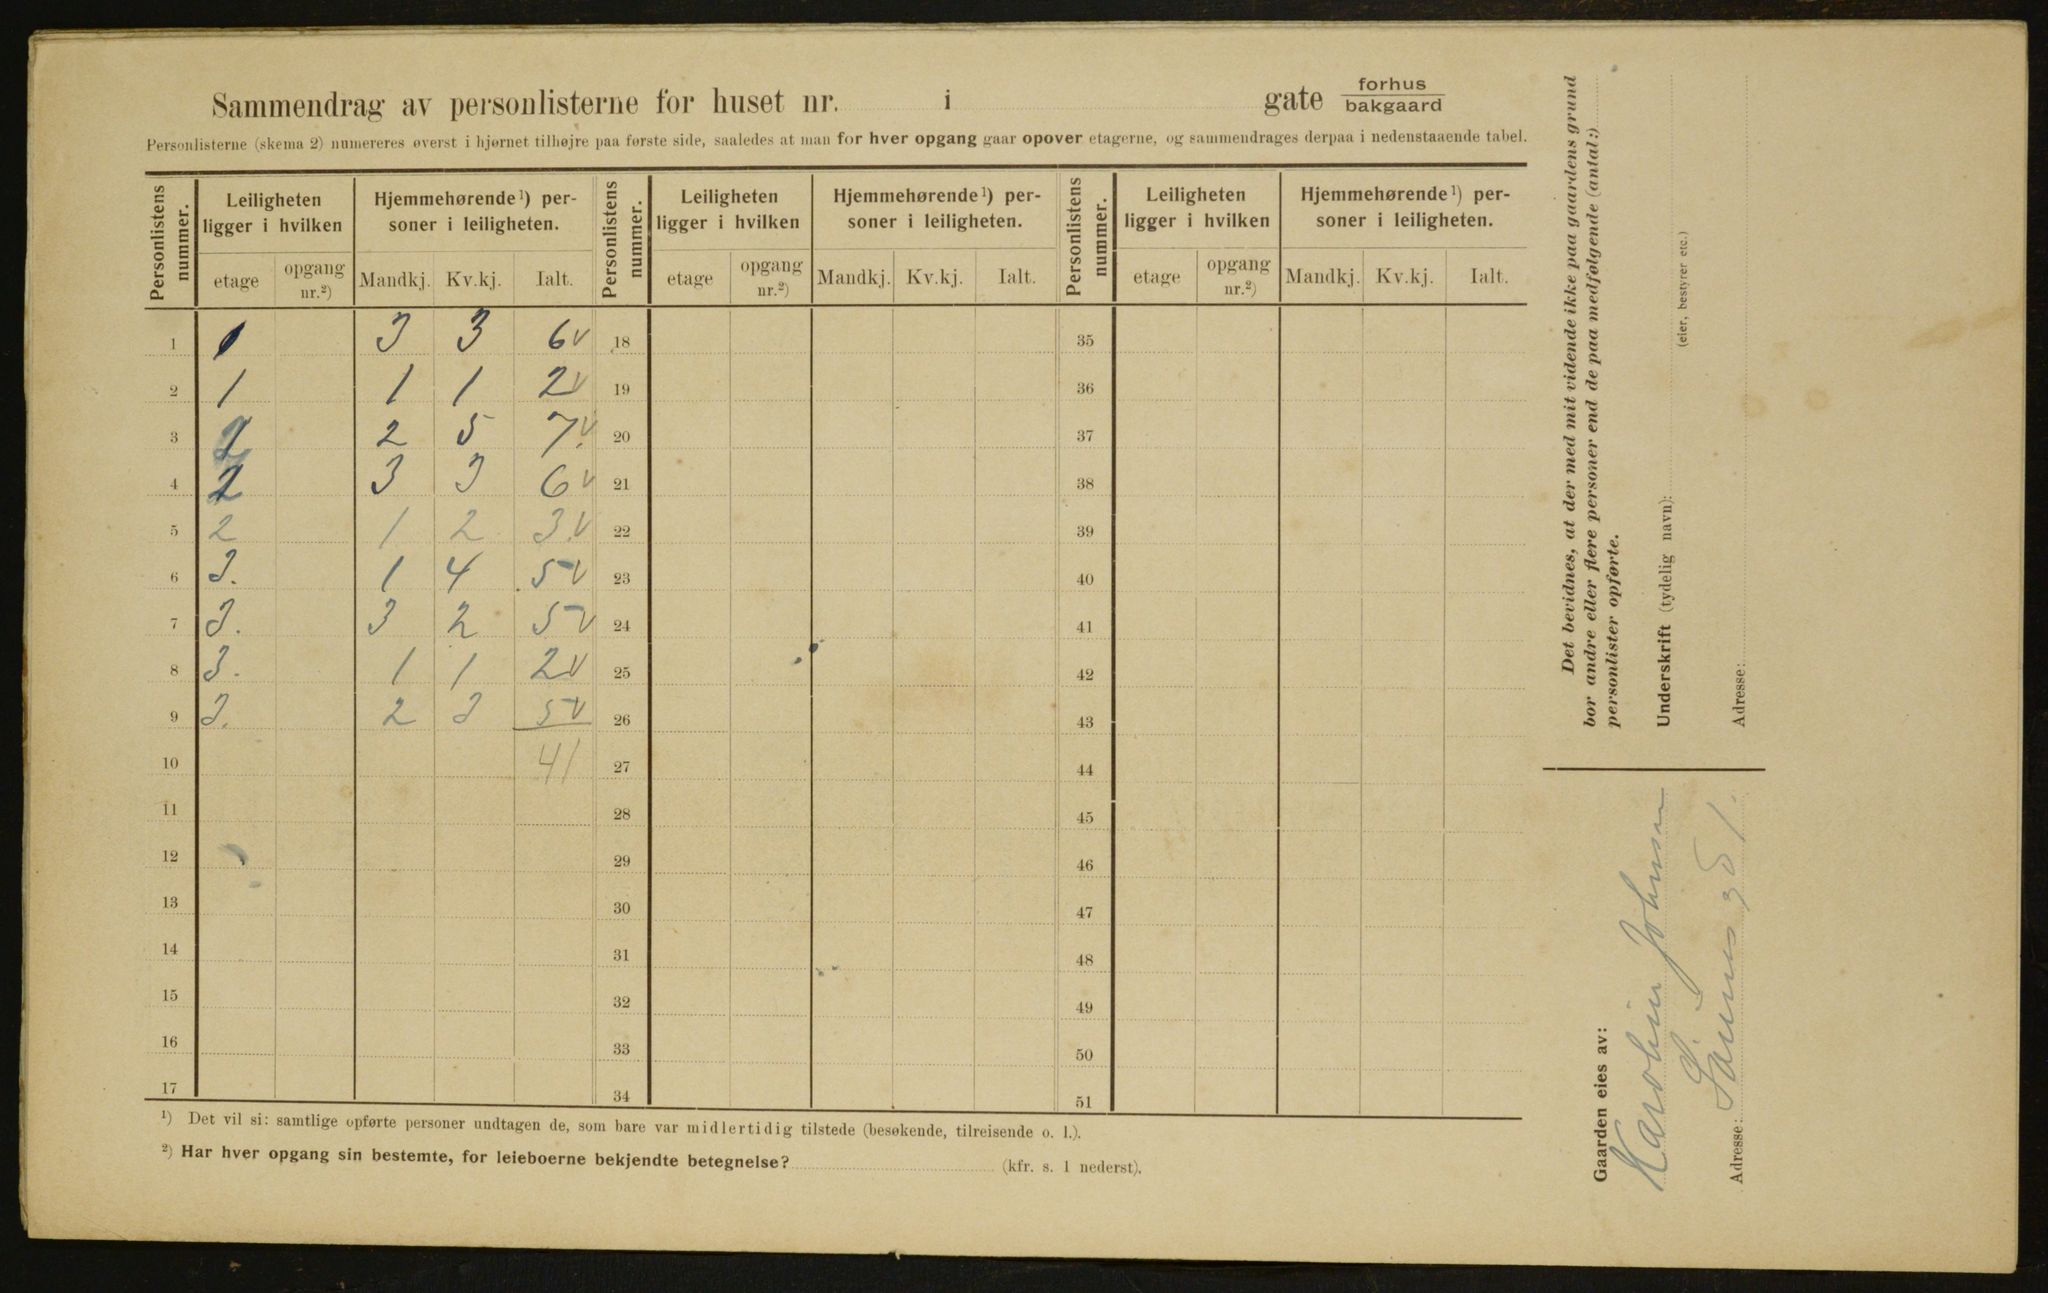 Sammendrag av personlisterne for huset nr. i gate forhus bakgaard
Personlisterne (skema 2) numereres øverst i hjørnet tilhøjre paa første side, saaledes at man for hver opgang gaar opover etagerne, og sammendrages derpaa i nedenstaaende tabel.
Personlistens nummer. Leiligheten ligger i hvilken Hjemmehørende¹) personer i leiligheten. Personlistens nummer. Leiligheten ligger i hvilken Hjemmehørende¹) personer i leiligheten. Personlistens nummer. Leiligheten ligger i hvilken Hjemmehørende¹) personer i leiligheten.
etage opgang nr.²) Mandkj. Kv.kj. Ialt. etage opgang nr.²) Mandkj. Kv.kj. Ialt. etage opgang nr.²) Mandkj. Kv.kj. Ialt.
1 1 3 3 6 v 18 35
2 1 1 1 2 v 19 36
3 2 5 7 v 20 37
4 2 3 3 6 v 21 38
5 2 1 2 3 v 22 39
6 3. 1 4 5 v 23 40
7 3. 3 2 5 v 24 41
8 3. 1 1 2 v 25 42
9 3. 2 3 5 v 26 43
10 41 27 44
11 28 45
12 29 46
13 30 47
14 31 48
15 32 49
16 33 50
17 34 51
¹) Det vil si: samtlige opførte personer undtagen de, som bare var midlertidig tilstede (besøkende, tilreisende o. l.).
²) Har hver opgang sin bestemte, for leieboerne bekjendte betegnelse? (kfr. s. 1 nederst).
Det bevidnes, at der med mit vidende ikke paa gaardens grund
bor andre eller flere personer end de paa medfølgende (antal:)
personlister opførte.
Underskrift (tydelig navn):
(eier, bestyrer etc.)
Adresse:
Gaarden eies av:
Johnsen
Adresse: